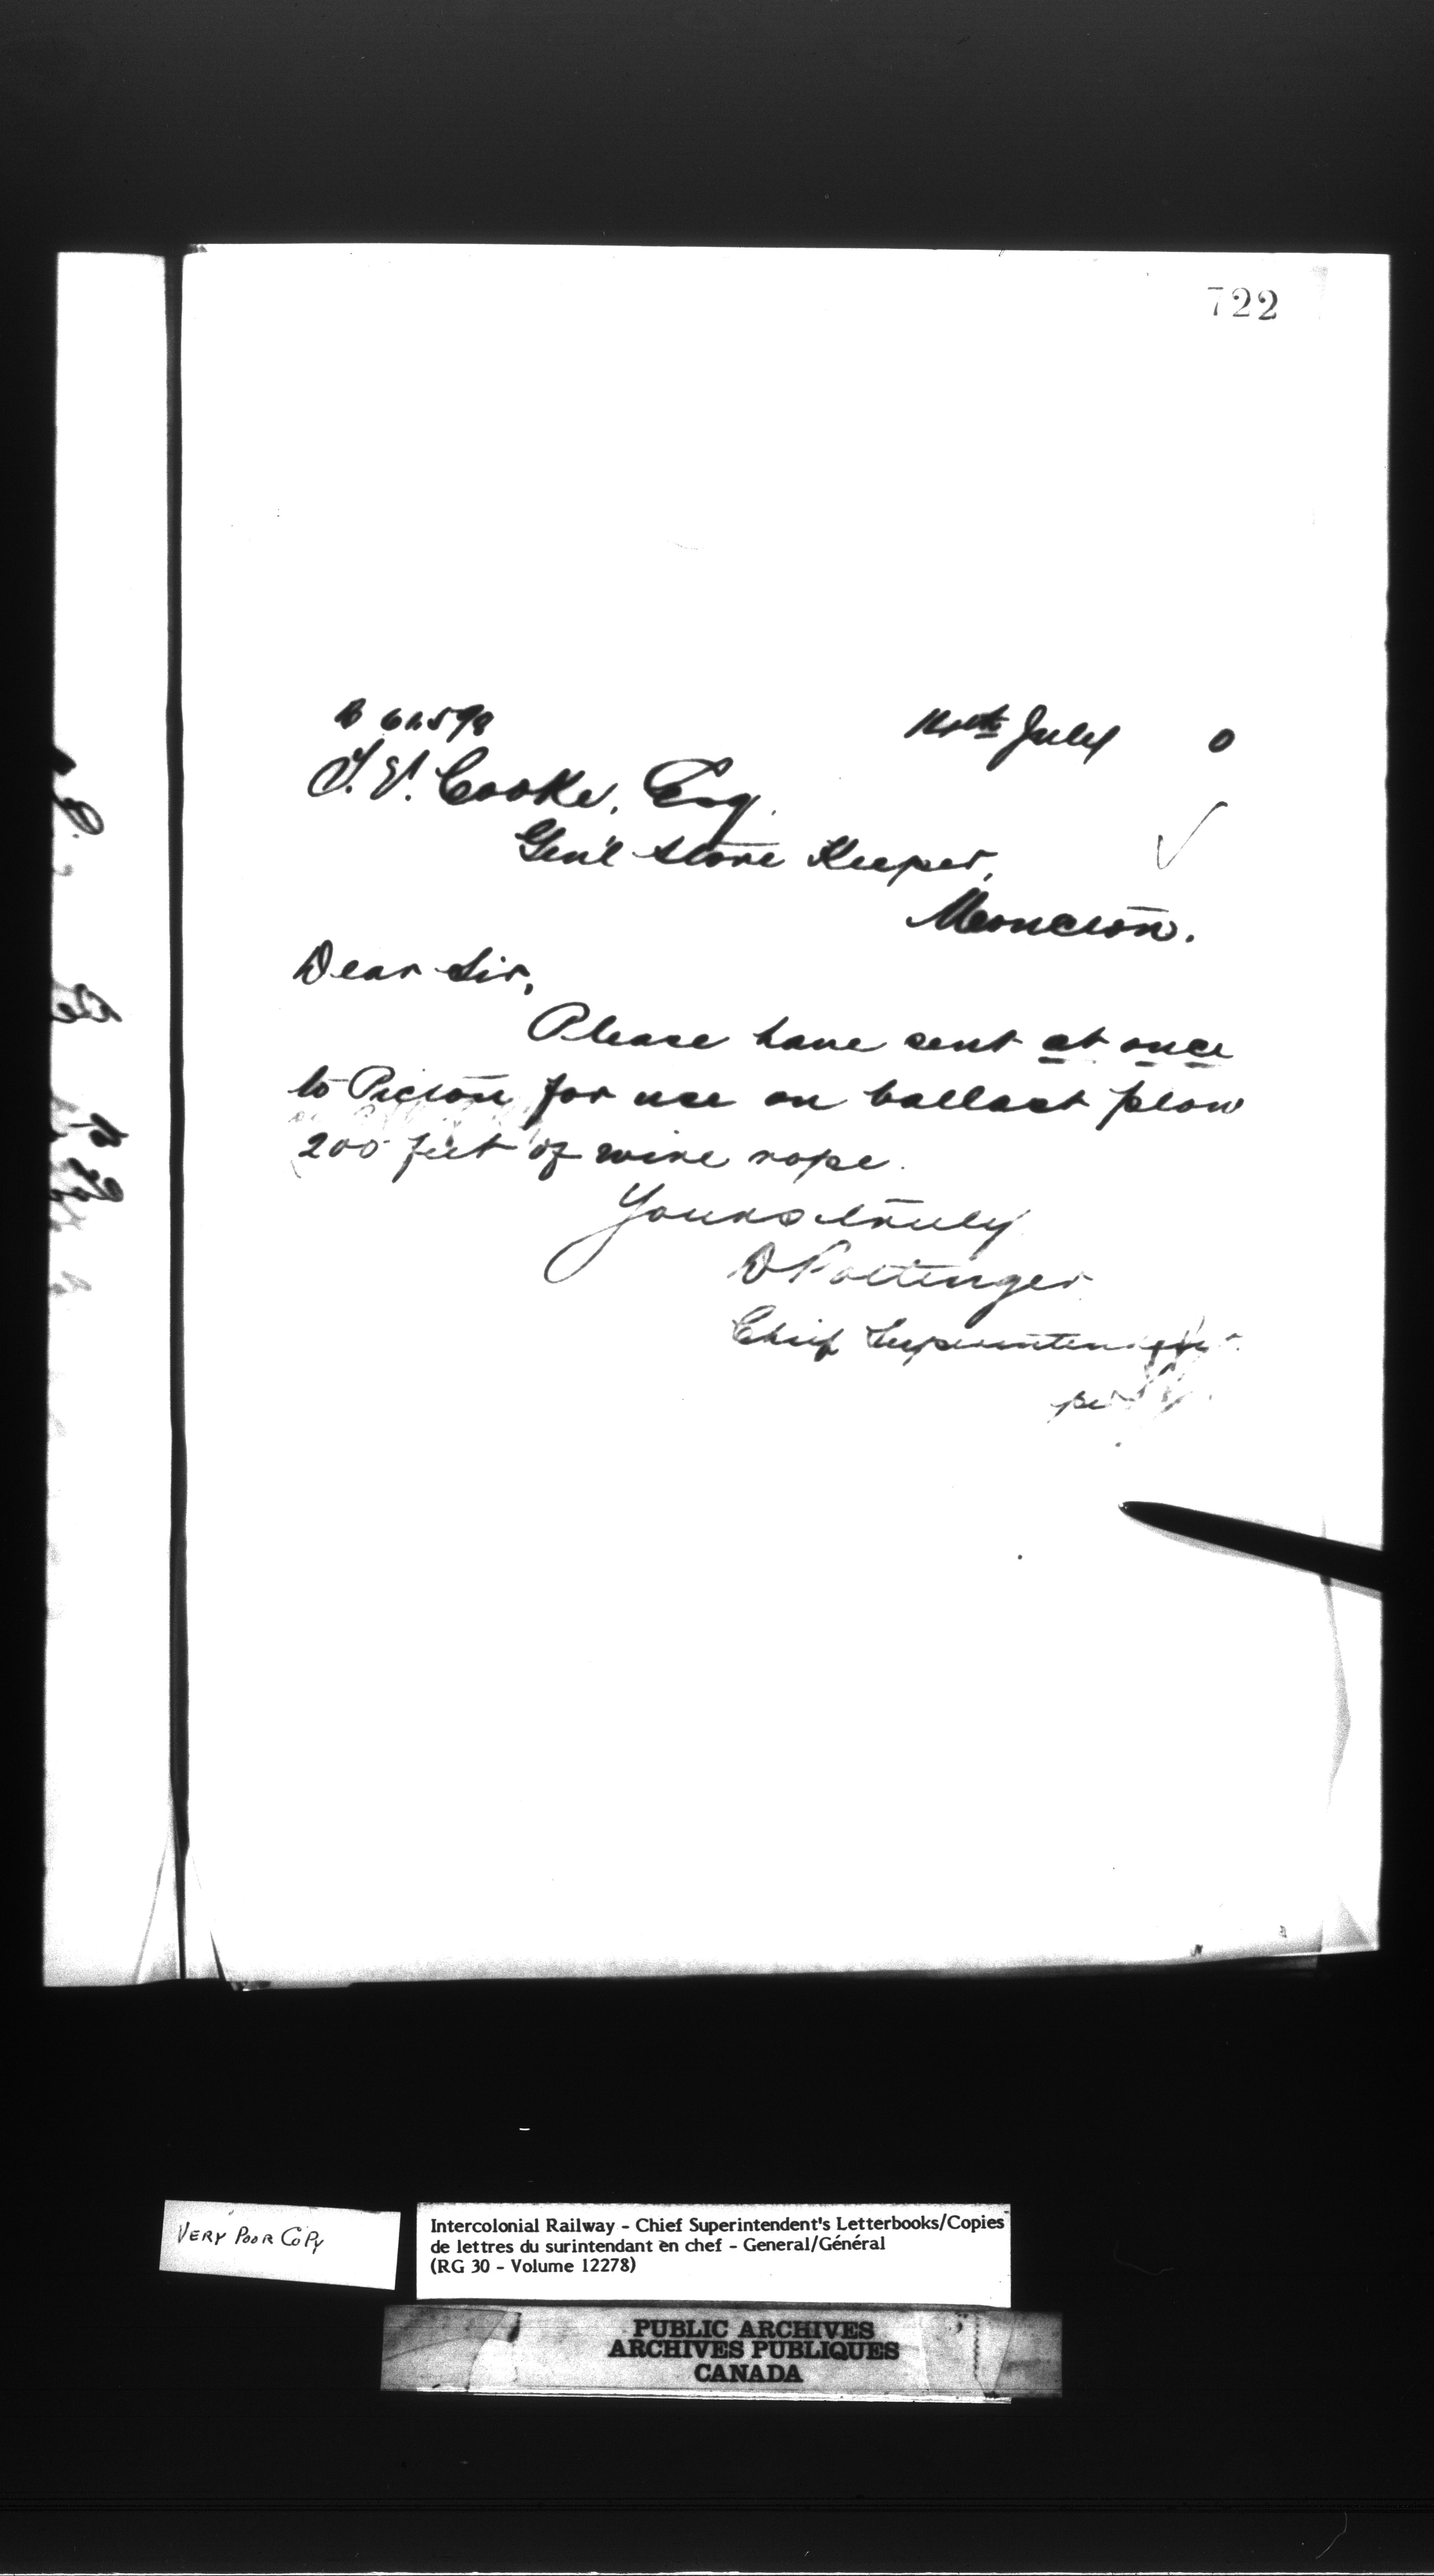 722
14th July 0
T. V. Cooke, Esq.
Gen'l Store Keeper,
Moncton.
Dear Sir,
Please have sent at once
to Pictou for use on ballast plow
200 feet of wire rope.
Yours truly
D Pottinger
Chief Superintendent
per
VERY POOR COPY
Intercolonial Railway - Chief Superintendent's Letterbooks/Copies
de lettres du surintendant en chef - General/Général
(RG 30 - Volume 12278)
PUBLIC ARCHIVES
ARCHIVES PUBLIQUES
CANADA